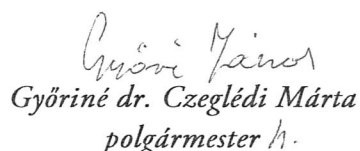 Győri János
Győriné dr. Czeglédi Márta
polgármester h.